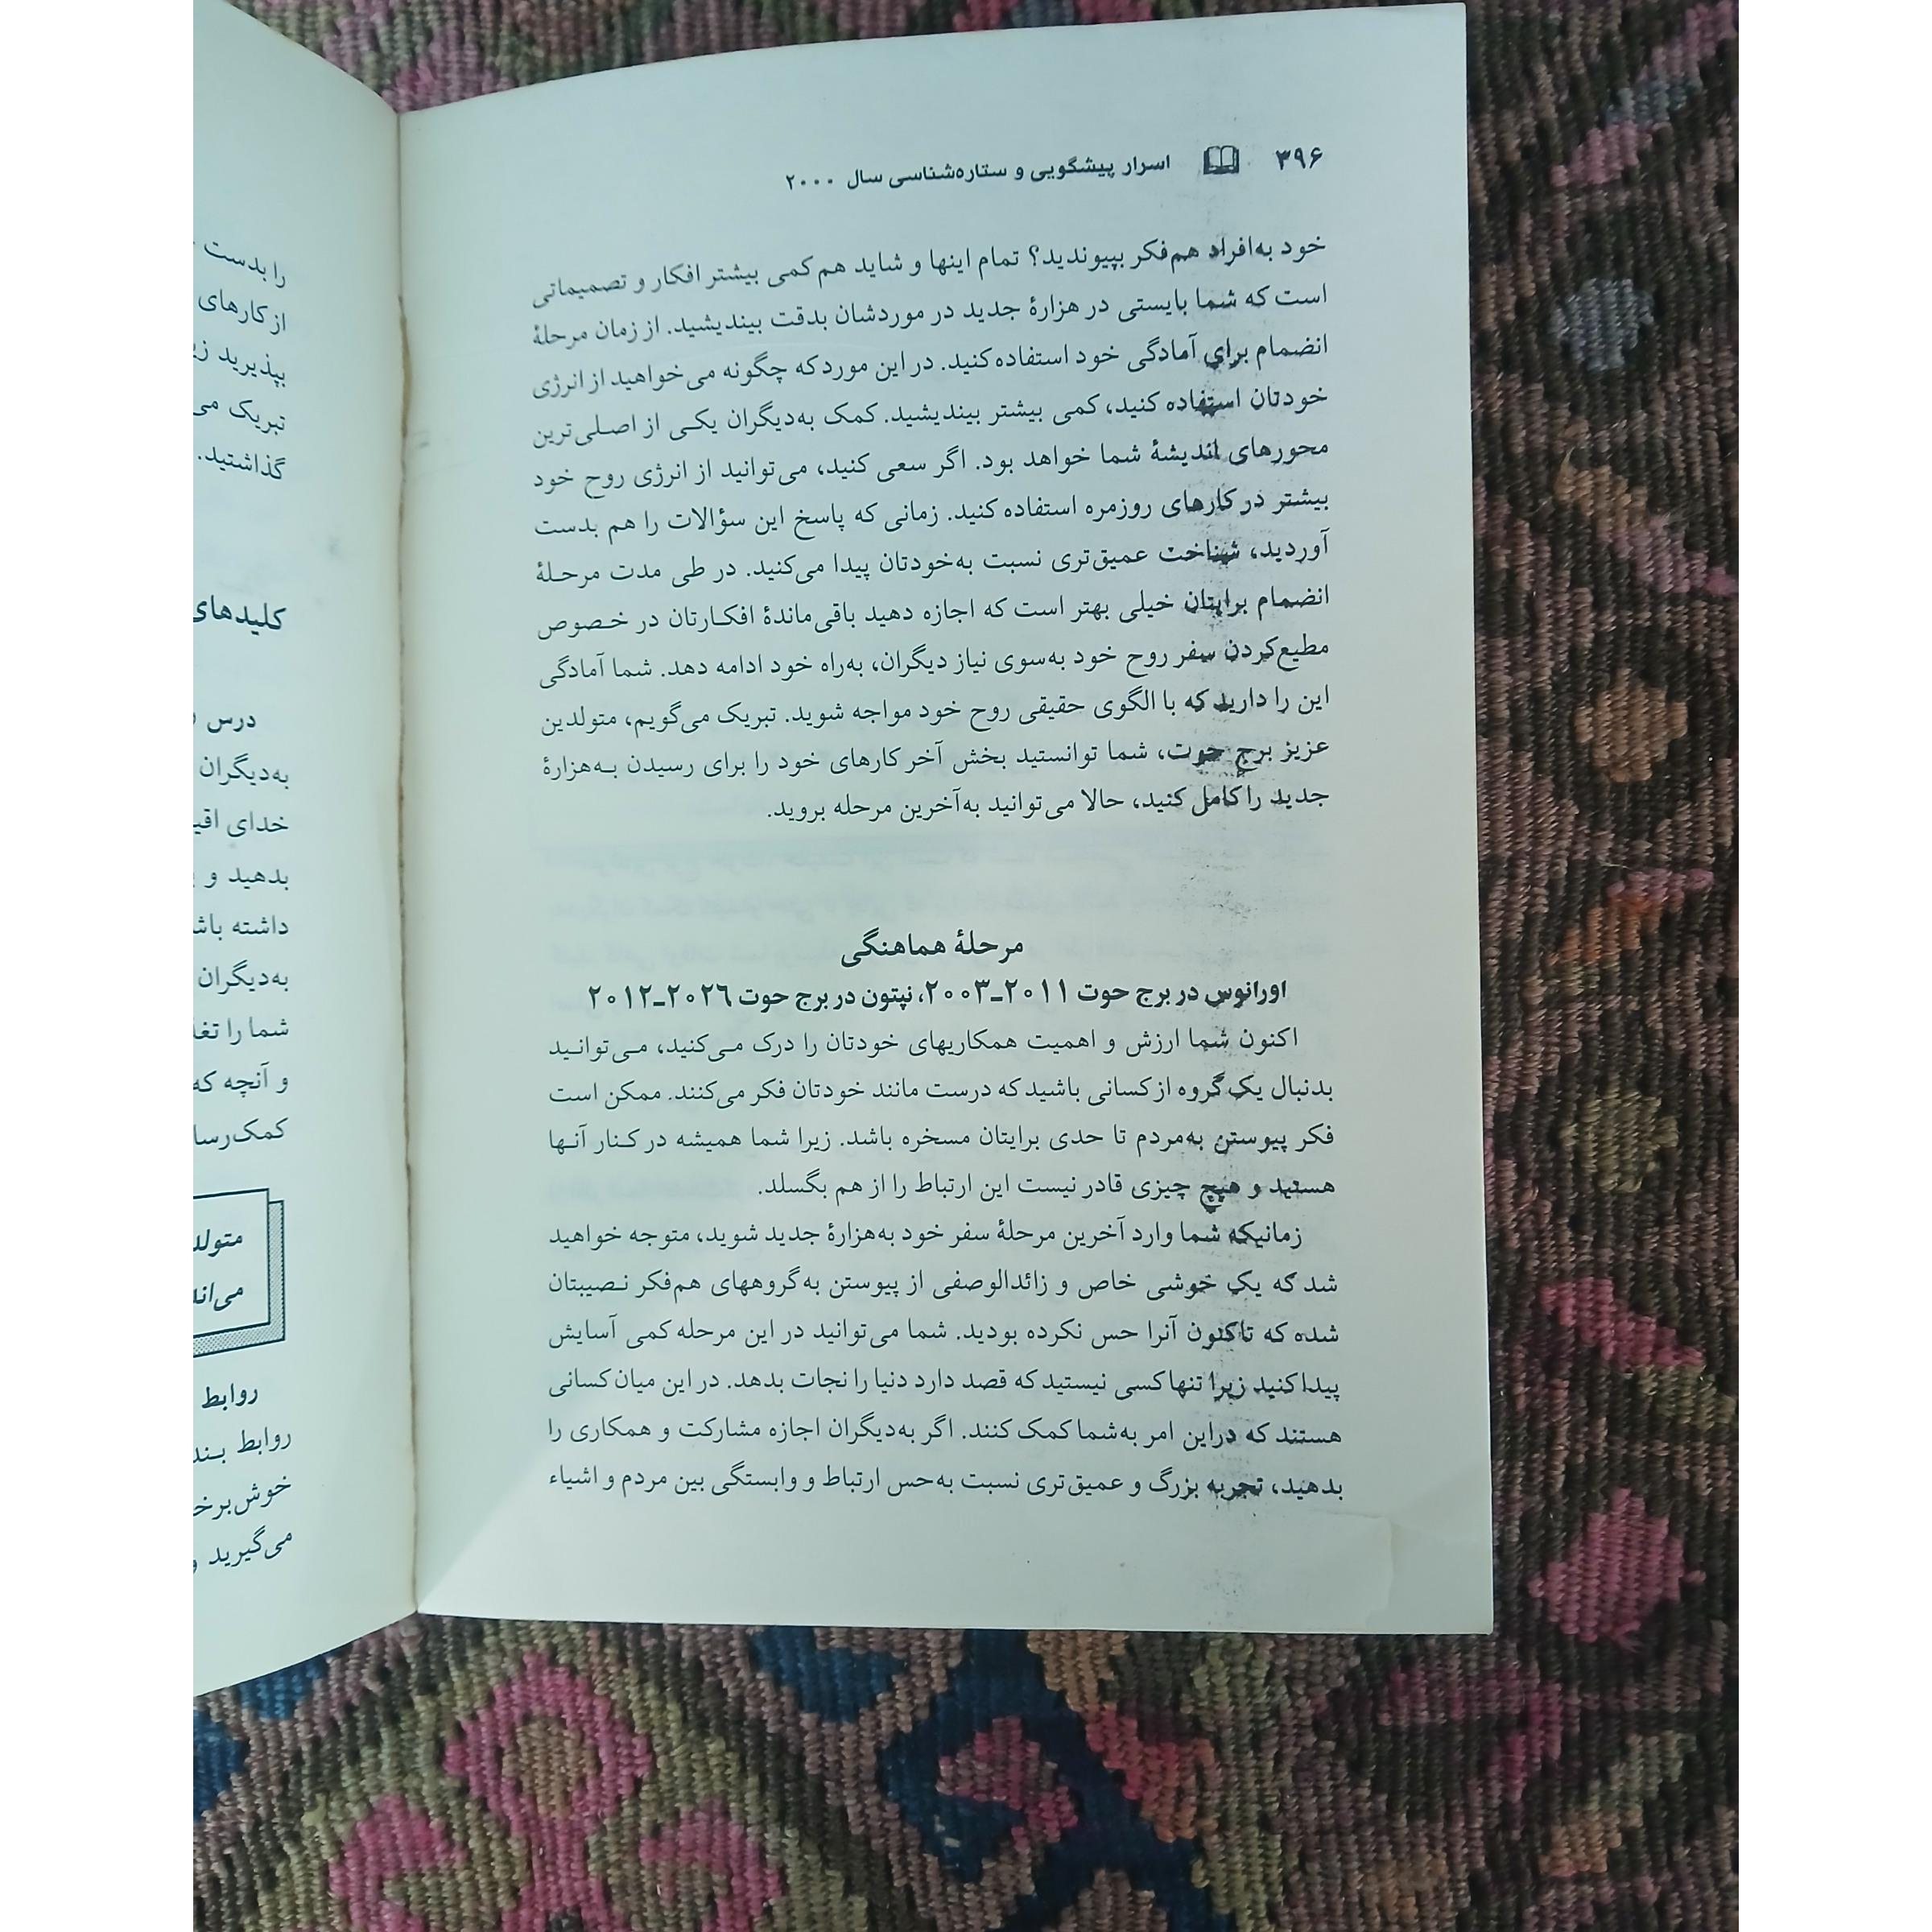 ۳۹۶ اسرار پیشگویی و ستاره‌شناسی سال ۲۰۰۰
خود به‌افراد هم‌فکر بپیوندید؟ تمام اینها و شاید هم کمی بیشتر افکار و تصمیماتی
است که شما بایستی در هزارهٔ جدید در موردشان بدقت بیندیشید. از زمان مرحلهٔ
انضمام برای آمادگی خود استفاده کنید. در این مورد که چگونه می‌خواهید از انرژی
خودتان استفاده کنید، کمی بیشتر بیندیشید. کمک به‌دیگران یکی از اصلی‌ترین
محورهای اندیشهٔ شما خواهد بود. اگر سعی کنید، می‌توانید از انرژی روح خود
بیشتر در کارهای روزمره استفاده کنید. زمانی که پاسخ این سؤالات را هم بدست
آوردید، شناخت عمیق‌تری نسبت به‌خودتان پیدا می‌کنید. در طی مدت مرحلهٔ
انضمام برایتان خیلی بهتر است که اجازه دهید باقی‌ماندهٔ افکارتان در خصوص
مطیع‌کردن سفر روح خود به‌سوی نیاز دیگران، به‌راه خود ادامه دهد. شما آمادگی
این را دارید که با الگوی حقیقی روح خود مواجه شوید. تبریک می‌گویم، متولدین
عزیز برج حوت، شما توانستید بخش آخر کارهای خود را برای رسیدن به‌هزارهٔ
جدید را کامل کنید، حالا می‌توانید به‌آخرین مرحله بروید.
مرحلهٔ هماهنگی
اورانوس در برج حوت ۲۰۱۱ـ۲۰۰۳، نپتون در برج حوت ۲۰۲۶ـ۲۰۱۲
اکنون شما ارزش و اهمیت همکاریهای خودتان را درک می‌کنید، می‌توانید
بدنبال یک گروه از کسانی باشید که درست مانند خودتان فکر می‌کنند. ممکن است
فکر پیوستن به‌مردم تا حدی برایتان مسخره باشد. زیرا شما همیشه در کنار آنها
هستید و هیچ چیزی قادر نیست این ارتباط را از هم بگسلد.
زمانیکه شما وارد آخرین مرحلهٔ سفر خود به‌هزارهٔ جدید شوید، متوجه خواهید
شد که یک خوشی خاص و زائدالوصفی از پیوستن به‌گروههای هم‌فکر نصیبتان
شده که تاکنون آنرا حس نکرده بودید. شما می‌توانید در این مرحله کمی آسایش
پیدا کنید زیرا تنها کسی نیستید که قصد دارد دنیا را نجات بدهد. در این میان کسانی
هستند که دراین امر به‌شما کمک کنند. اگر به‌دیگران اجازه مشارکت و همکاری را
بدهید، تجربه بزرگ و عمیق‌تری نسبت به‌حس ارتباط و وابستگی بین مردم و اشیاء
را بدست
از کارهای
بپذیرید
تبریک
گذاشتید.
کلیدهای
درس
به‌دیگران
خدای
بدهید و
داشته
به‌دیگران
شما را
و آنچه که
متولد
روابط
روابط
می‌گیرید